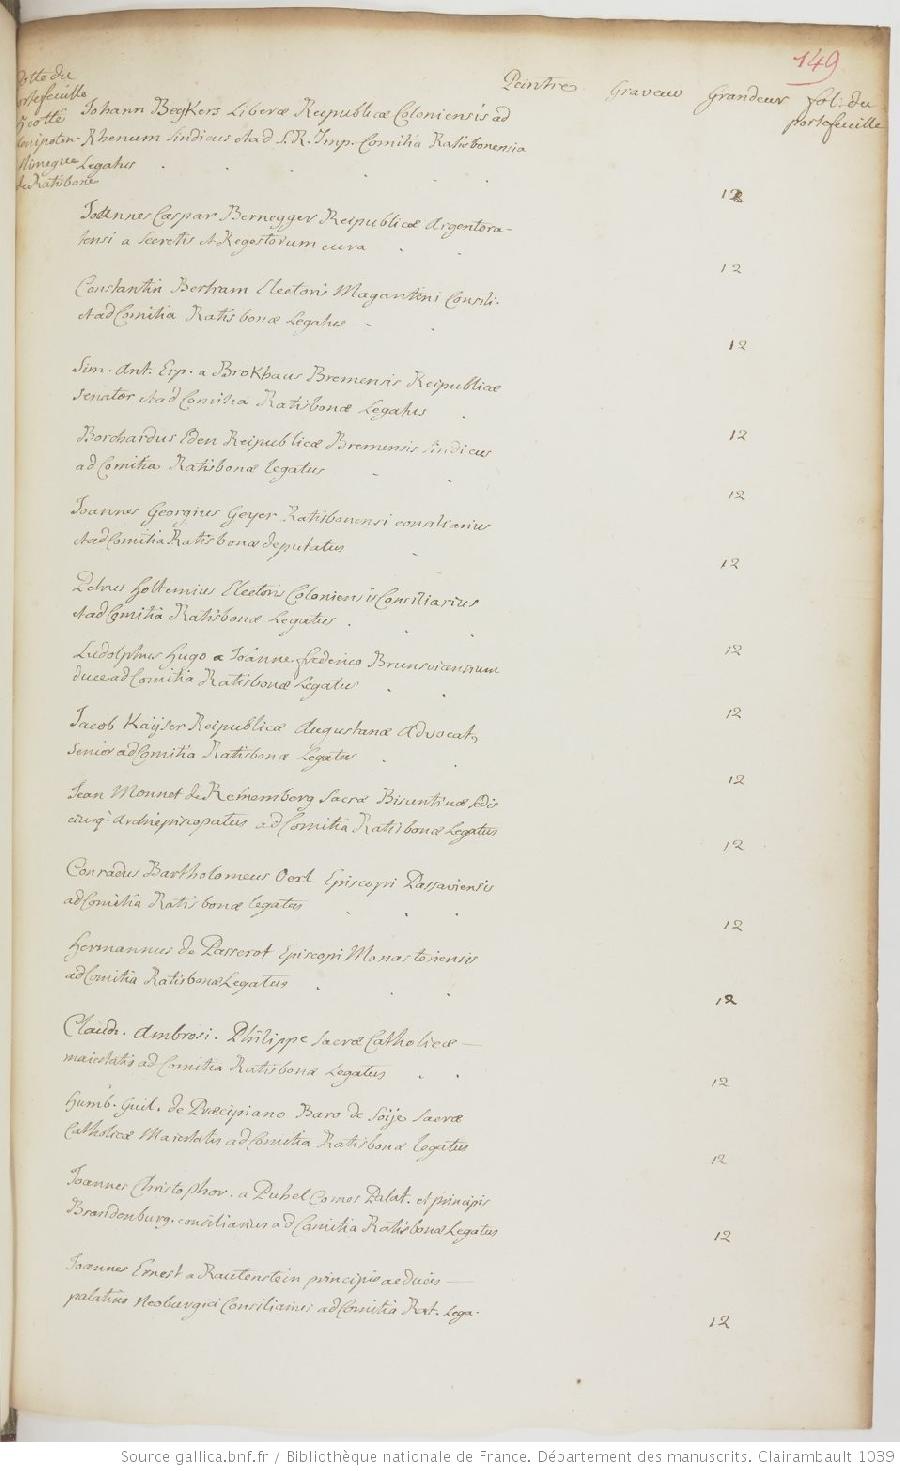 149
Peintre Graveur Grandeur fol. du
portefeuille
Cotte du
portefeuille
Johann Beckers Liberæ Reipublicæ Coloniensis ad
Rhenum Sindicus et ad S.R. Imp. Comitia Ratisbonensia
Legatus
de Ratisbone
12
Joannes Caspar Bernegger Reipublicæ Argentora-
tensi a Secretis et Regestorum cura
12
Constantin Bertram Electoris Maguntini Consili.
et ad Comitia Ratisbonæ Legatus
12
Sim. Ant. Erp. a Brokhaus Bremensis Reipublicæ
Senator et ad Comitia Ratisbonæ Legatus
12
Borchardus Eden Reipublicæ Bremensis Sindicus
ad Comitia Ratisbonæ legatus
12
Joannes Georgius Geyer Ratisbonensi consiliarius
et ad Comitia Ratisbonæ deputatus
12
Petrus Holtemius Electoris Coloniensis Consiliarius
et ad Comitia Ratisbonæ Legatus
12
Ludolphus Hugo a Joanne Frederico Brunsvicensium
duce ad Comitia Ratisbonæ Legatus
12
Jacob Kayser Reipublicæ Augustanæ Advocat,
Senior ad Comitia Ratisbonæ Legatus
12
Jean Monnet de Remenberg Sacræ Bisuntinæ Sedis
eiusq. Archiepiscopatus ad Comitia Ratisbonæ Legatus
12
Conradus Bartholomeus Oexl Episcopi Passaviensis
ad Comitia Ratisbonæ legatus
12
Hermannus de Passerot Episcopi Monasteriensis
ad Comitia Ratisbonæ Legatus
12
Claud. Ambrosi. Philippe Sacræ Catholicæ —
maiestatis ad Comitia Ratisbonæ Legatus
12
Humb. Guil. de Precipiano Baro de Soije Sacræ
Catholicæ Maiestatis ad Comitia Ratisbonæ legatus
12
Joannes Christophor. a Puhel Comes Palat. et principis
Brandenburg. consiliarius ad Comitia Ratisbonæ Legatus
12
Joannes Ernest a Rautenstein principis ac ducis —
palatini Neoburgici Consiliarius ad Comitia Rat. Lega.
12
Source gallica.bnf.fr / Bibliothèque nationale de France. Département des manuscrits. Clairambault 1039